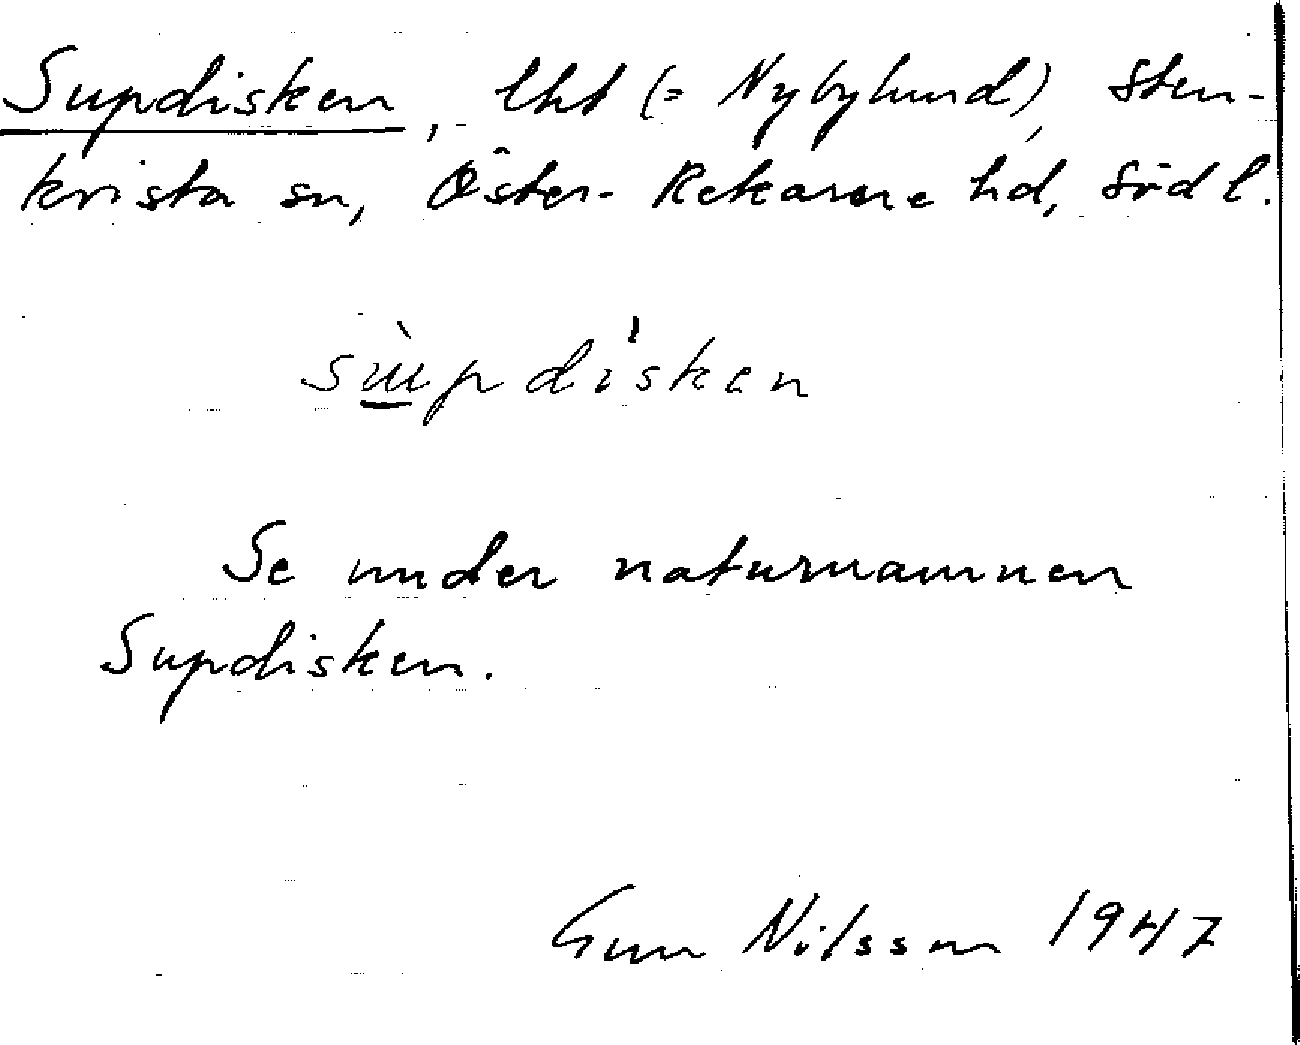 Supdisken, lht (= Nybylund), Sten-
kvista sn, Öster-Rekarne hd, Södl.
sɯ̱̀pdı̍sken
Se under naturnamnen
Supdisken.
Gun Nilsson 1947